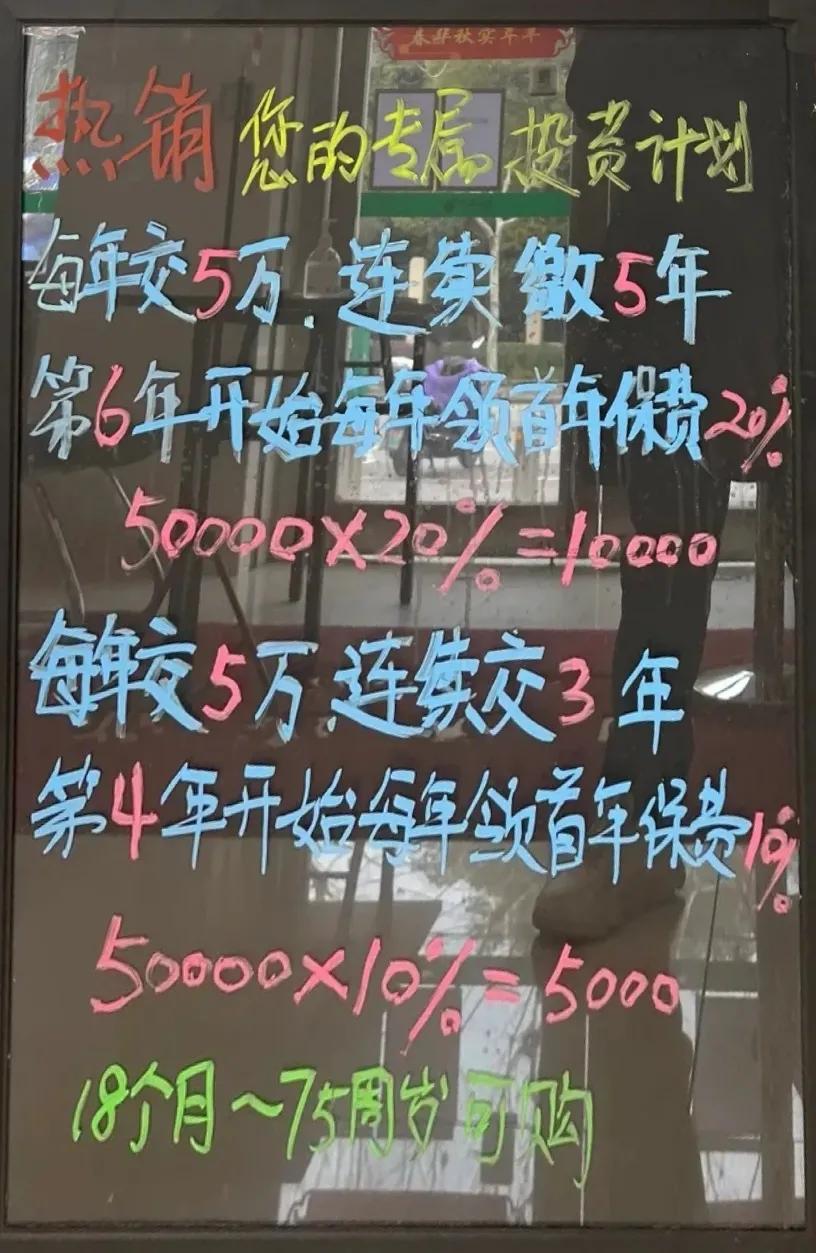 春华秋实年年
热销 您的专属投资计划
每年交5万.连续缴5年
第6年开始每年领首年保费20%
50000×20%=10000
每年交5万.连续交3年
第4年开始每年领首年保费10%
50000×10%=5000
18个月~75周岁可购